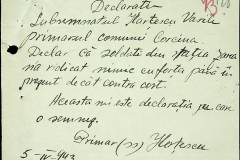 Declarație
Subsemnatul Hortescu Vasile
primarul comunii Corcina
Declar că soldații din stația
n'a ridicat nimic cu forța până în
prezent decât contra cost.
Aceasta mi este declarația pe care
o semnez.
Primar (ss) Hortescu
5-IV-943